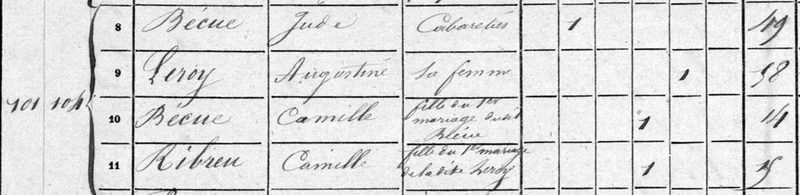 8 Bécue Jude Cabaretier 1 49
9 Leroy Augustine sa femme 1 58
101 104 10 Bécue Camille fille du 1er
mariage dudit
Bécue 1 14
11 Ribreu Camille fille du 1er mariage
de la dite Leroy 1 15